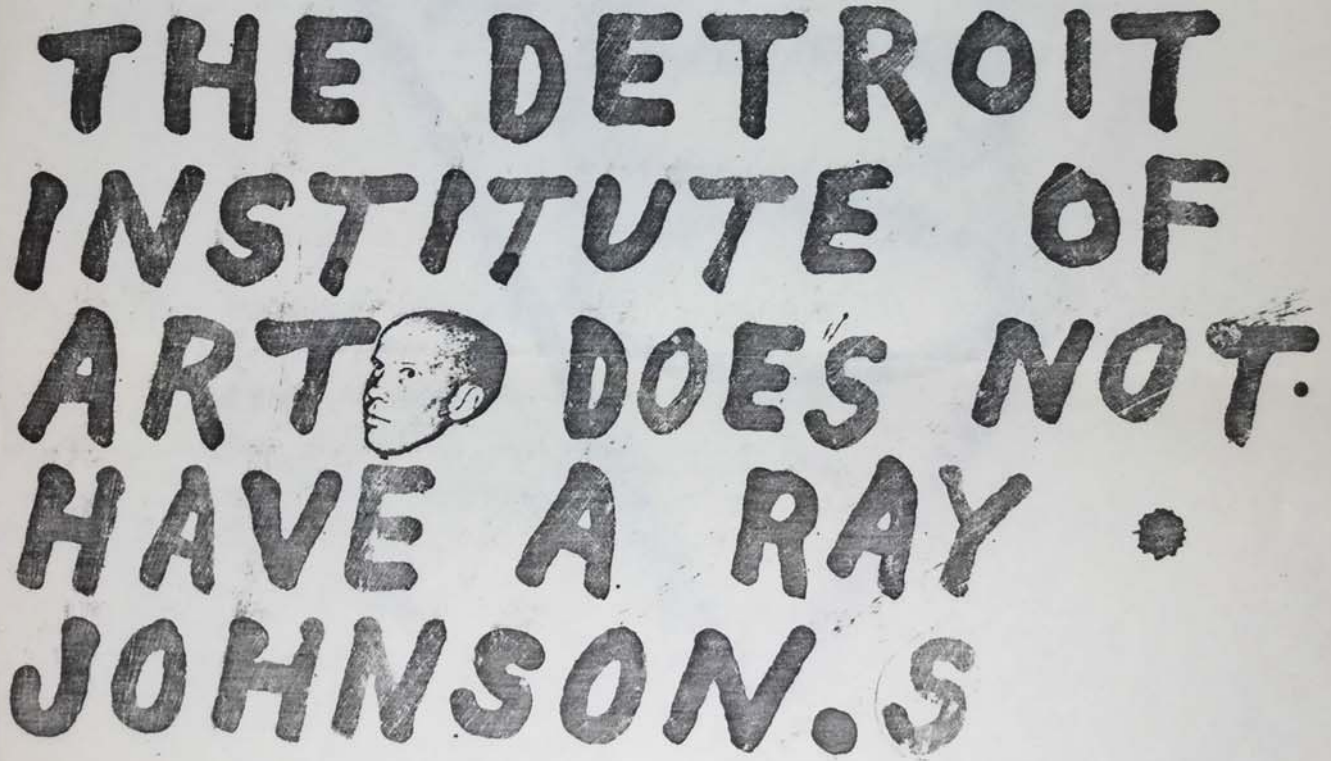 THE DETROIT
INSTITUTE OF
ART DOES NOT.
HAVE A RAY
JOHNSON.S